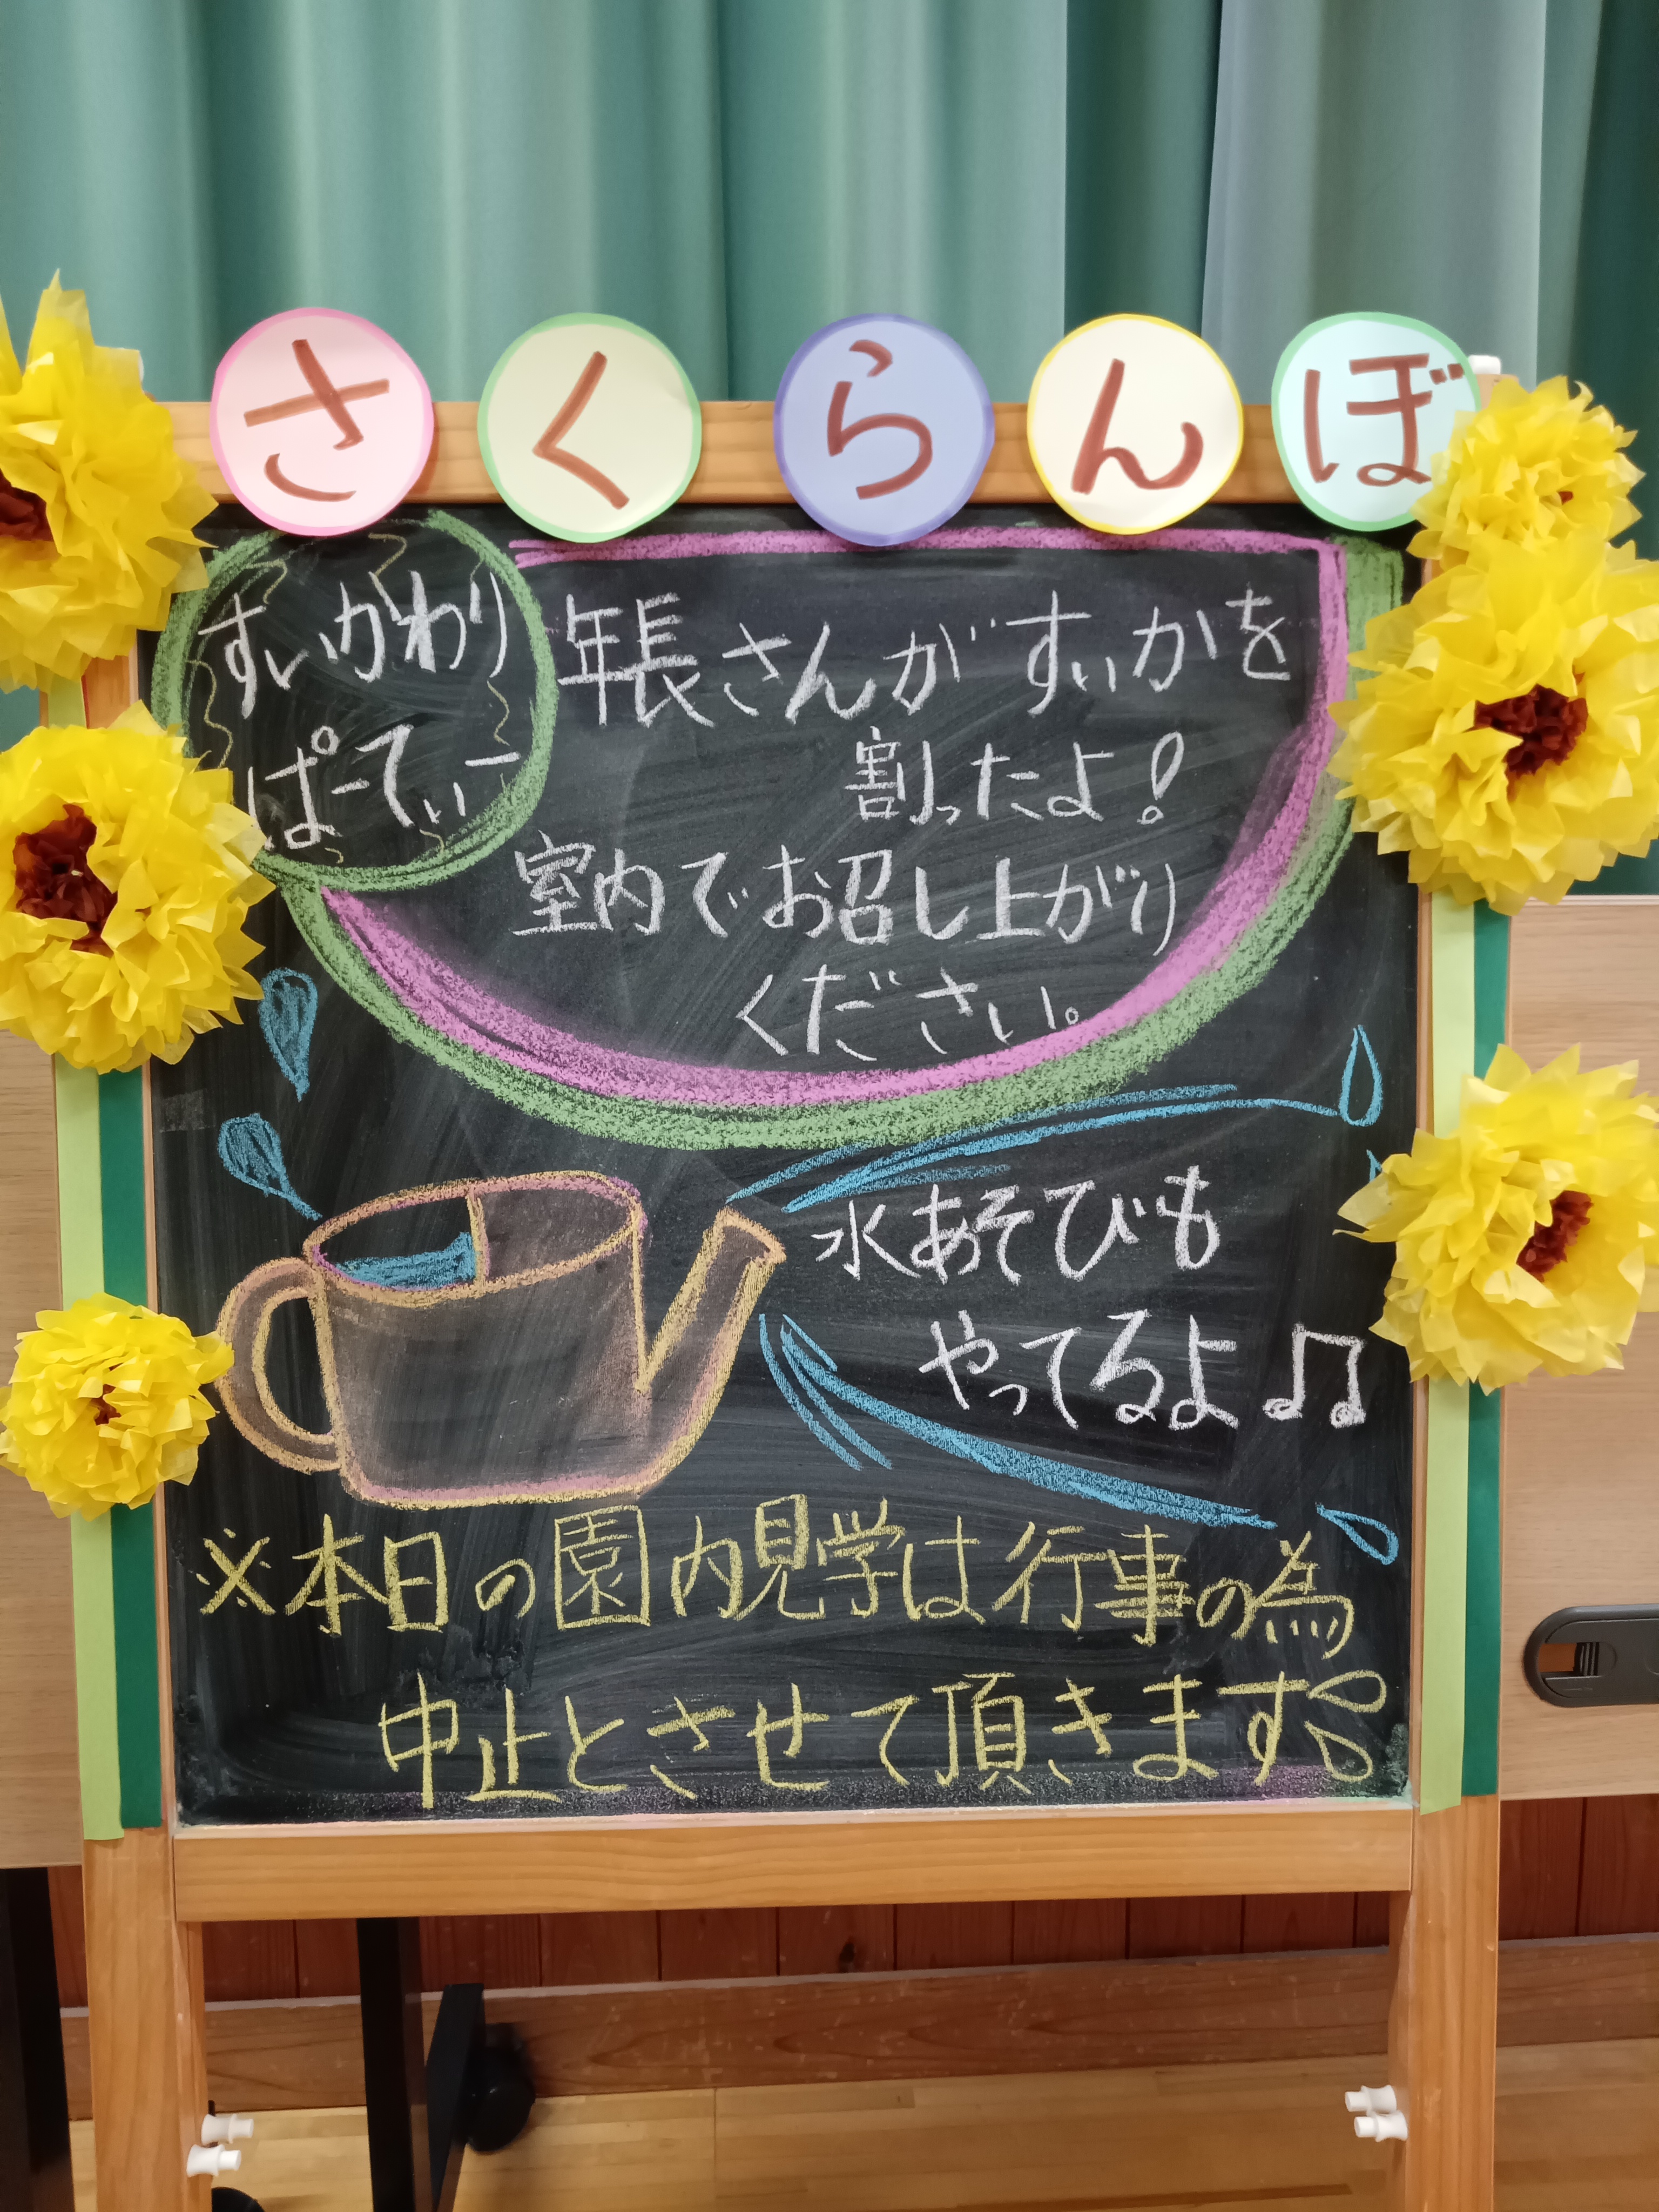 さくらんぼ
すいかわり
ぱーてぃー
年長さんがすいかを
割ったよ!
室内でお召し上がり
ください。
水あそびも
やってるよ♫
※本日の園内見学は行事の為
中止とさせて頂きます